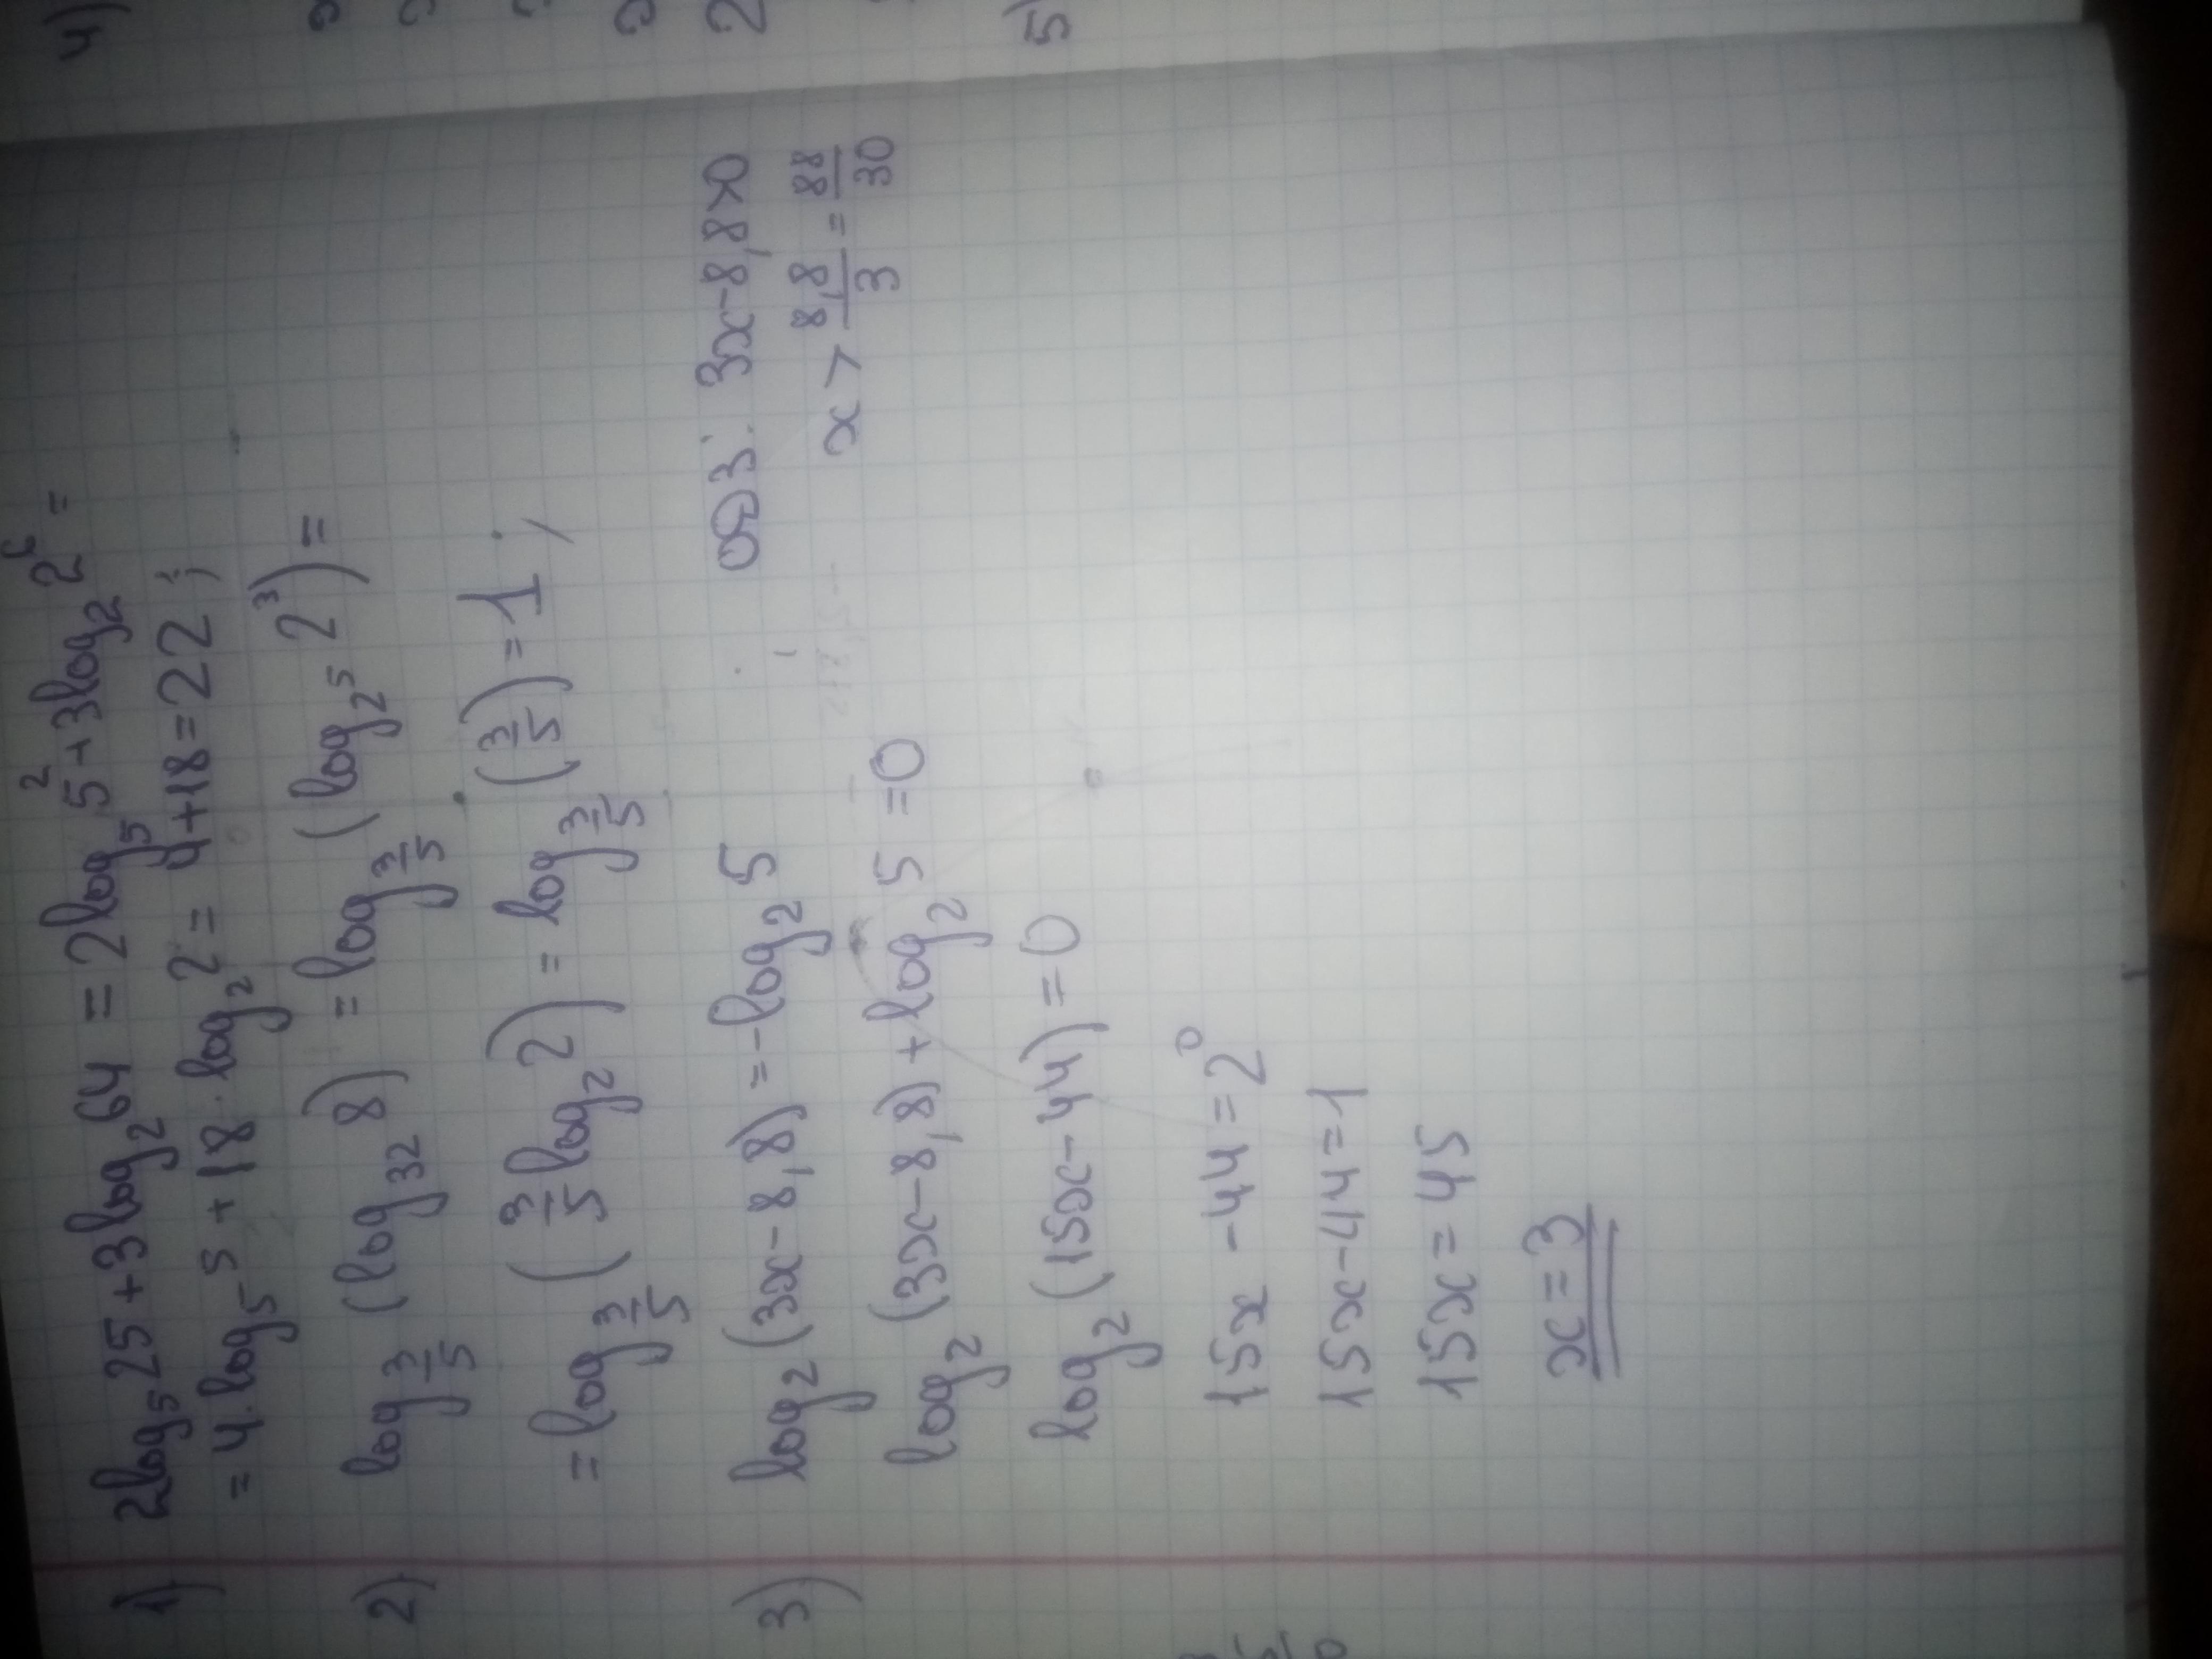 1) 2log₅25+3log₂64 = 2log₅5²+3log₂2⁶ =
= 4·log₅5+18·log₂2 = 4+18=22;
2) log_{3/5}(log₃₂8) = log_{3/5}(log_{2⁵}2³) =
= log_{3/5}(3/5 log₂2) = log_{3/5}(3/5) = 1;
3) log₂(3x-8,8) = -log₂5 ОДЗ: 3x-8,8>0
log₂(3x-8,8)+log₂5=0 x > 8,8/3 = 88/30
log₂(15x-44)=0
15x-44=2⁰
15x-44=1
15x=45
x=3
4)
5)